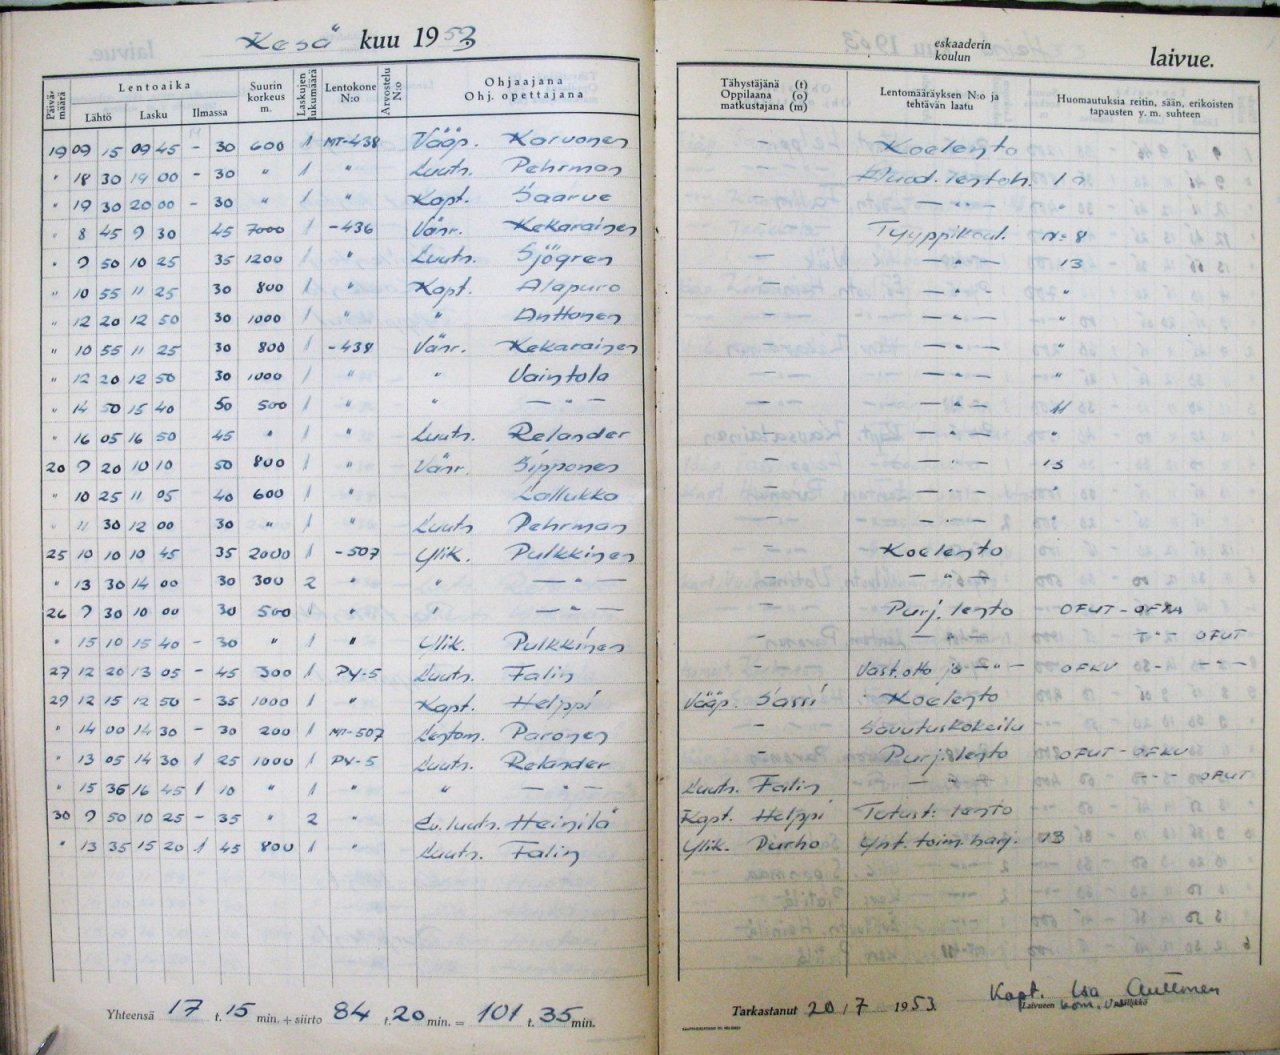 Kesä kuu 1953
eskaaderin
koulun
laivue.
Päivä-
määrä
Lentoaika
Lähtö Lasku Ilmassa
Suurin
korkeus
m.
Laskujen
lukumäärä
Lentokone
N:o
Arvostelu
N:o
Ohjaajana
Ohj. opettajana
Tähystäjänä (t)
Oppilaana (o)
matkustajana (m)
Lentomääräyksen N:o ja
tehtävän laatu
Huomautuksia reitin, sään, erikoisten
tapausten y. m. suhteen
19 09 15 09 45 - 30 600 1 MT-438 Vääp. Karvonen - Koelento
" 18 30 19 00 - 30 " 1 " Luutn. Pehrman -
" 19 30 20 00 - 30 " 1 " Kapt. Saarve - — " —
" 8 45 9 30 45 7000 1 -436 Vänr. Kekarainen - Tyyppikoul. N:o 8
" 9 50 10 25 35 1200 1 " Luutn. Sjögren - — " — 13
" 10 55 11 25 30 800 1 " Kapt. Alapuro - — " — "
" 12 20 12 50 30 1000 1 " " Anttonen - — " — "
" 10 55 11 25 30 800 1 -438 Vänr. Kekarainen - — " — "
" 12 20 12 50 30 1000 1 " " Vaintola - — " — "
" 14 50 15 40 50 500 1 " " — " — - — " — 11
" 16 05 16 50 45 " 1 " Luutn. Relander - — " — "
20 9 20 10 10 50 800 1 " Vänr. Sipponen - — " — 13
" 10 25 11 05 40 600 1 " Lallukko - — " — "
" 11 30 12 00 30 " 1 " Luutn Pehrman - — " — "
25 10 10 10 45 35 2000 1 -507 Ylik. Pulkkinen - Koelento
" 13 30 14 00 30 300 2 " " — " — - — " —
26 9 30 10 00 30 500 1 " " — " — Purj. lento OFUT -
" 15 10 15 40 - 30 " 1 " Ylik. Pulkkinen - — " — OFUT
27 12 20 13 05 - 45 300 1 PY-5 Luutn. Falin - Vast.otto ja — " — OFKV - — " —
29 12 15 12 50 - 35 1000 1 " Kapt. Helppi Vääp. Sassi Koelento
" 14 00 14 30 - 30 200 1 MT-507 Lentom. Paronen - Savutuskokeilu
" 13 05 14 30 1 25 1000 1 PY-5 Luutn. Relander - Purj. lento OFUT - OFKV
" 15 35 16 45 1 10 " 1 " " — " — Luutn. Falin — " — OFUT
30 9 50 10 25 - 35 " 2 " Ev.luutn. Heinilä Kapt. Helppi Tutust. lento
" 13 35 15 20 1 45 800 1 " Luutn. Falin Ylik. Purho Yht.toim.harj. 13
Yhteensä 17 t. 15 min. + siirto 84 t. 20 min. = 101 t. 35 min.
Tarkastanut 20 / 7 1953.
Kapt. Anttonen
Laivueen päällikkö